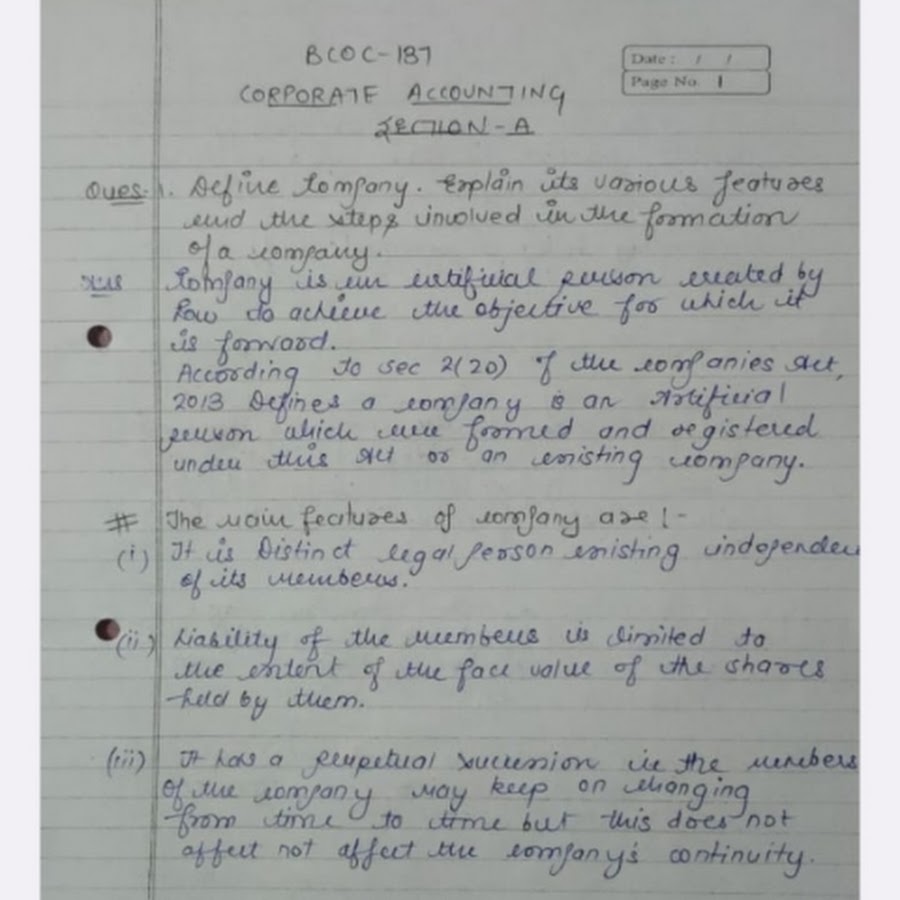 BCOC-137
Date : / /
Page No. 1
CORPORATE ACCOUNTING
SECTION-A
Ques. 1. Define Company. Explain its various features
and the steps involved in the formation
of a company.
Ans Company is an artificial person created by
Law to achieve the objective for which it
is forward.
According to sec 2(20) of the companies Act,
2013 Defines a company is an Artificial
person which were formed and registered
under this Act or an existing company.
# The main features of company are !-
(i) It is Distinct legal person existing independen
of its members.
(ii) Liability of the members is limited to
the extent of the face value of the shares
held by them.
(iii) It has a perpetual succession i.e the members
of the company may keep on changing
from time to time but this does not
affect not affect the company's continuity.